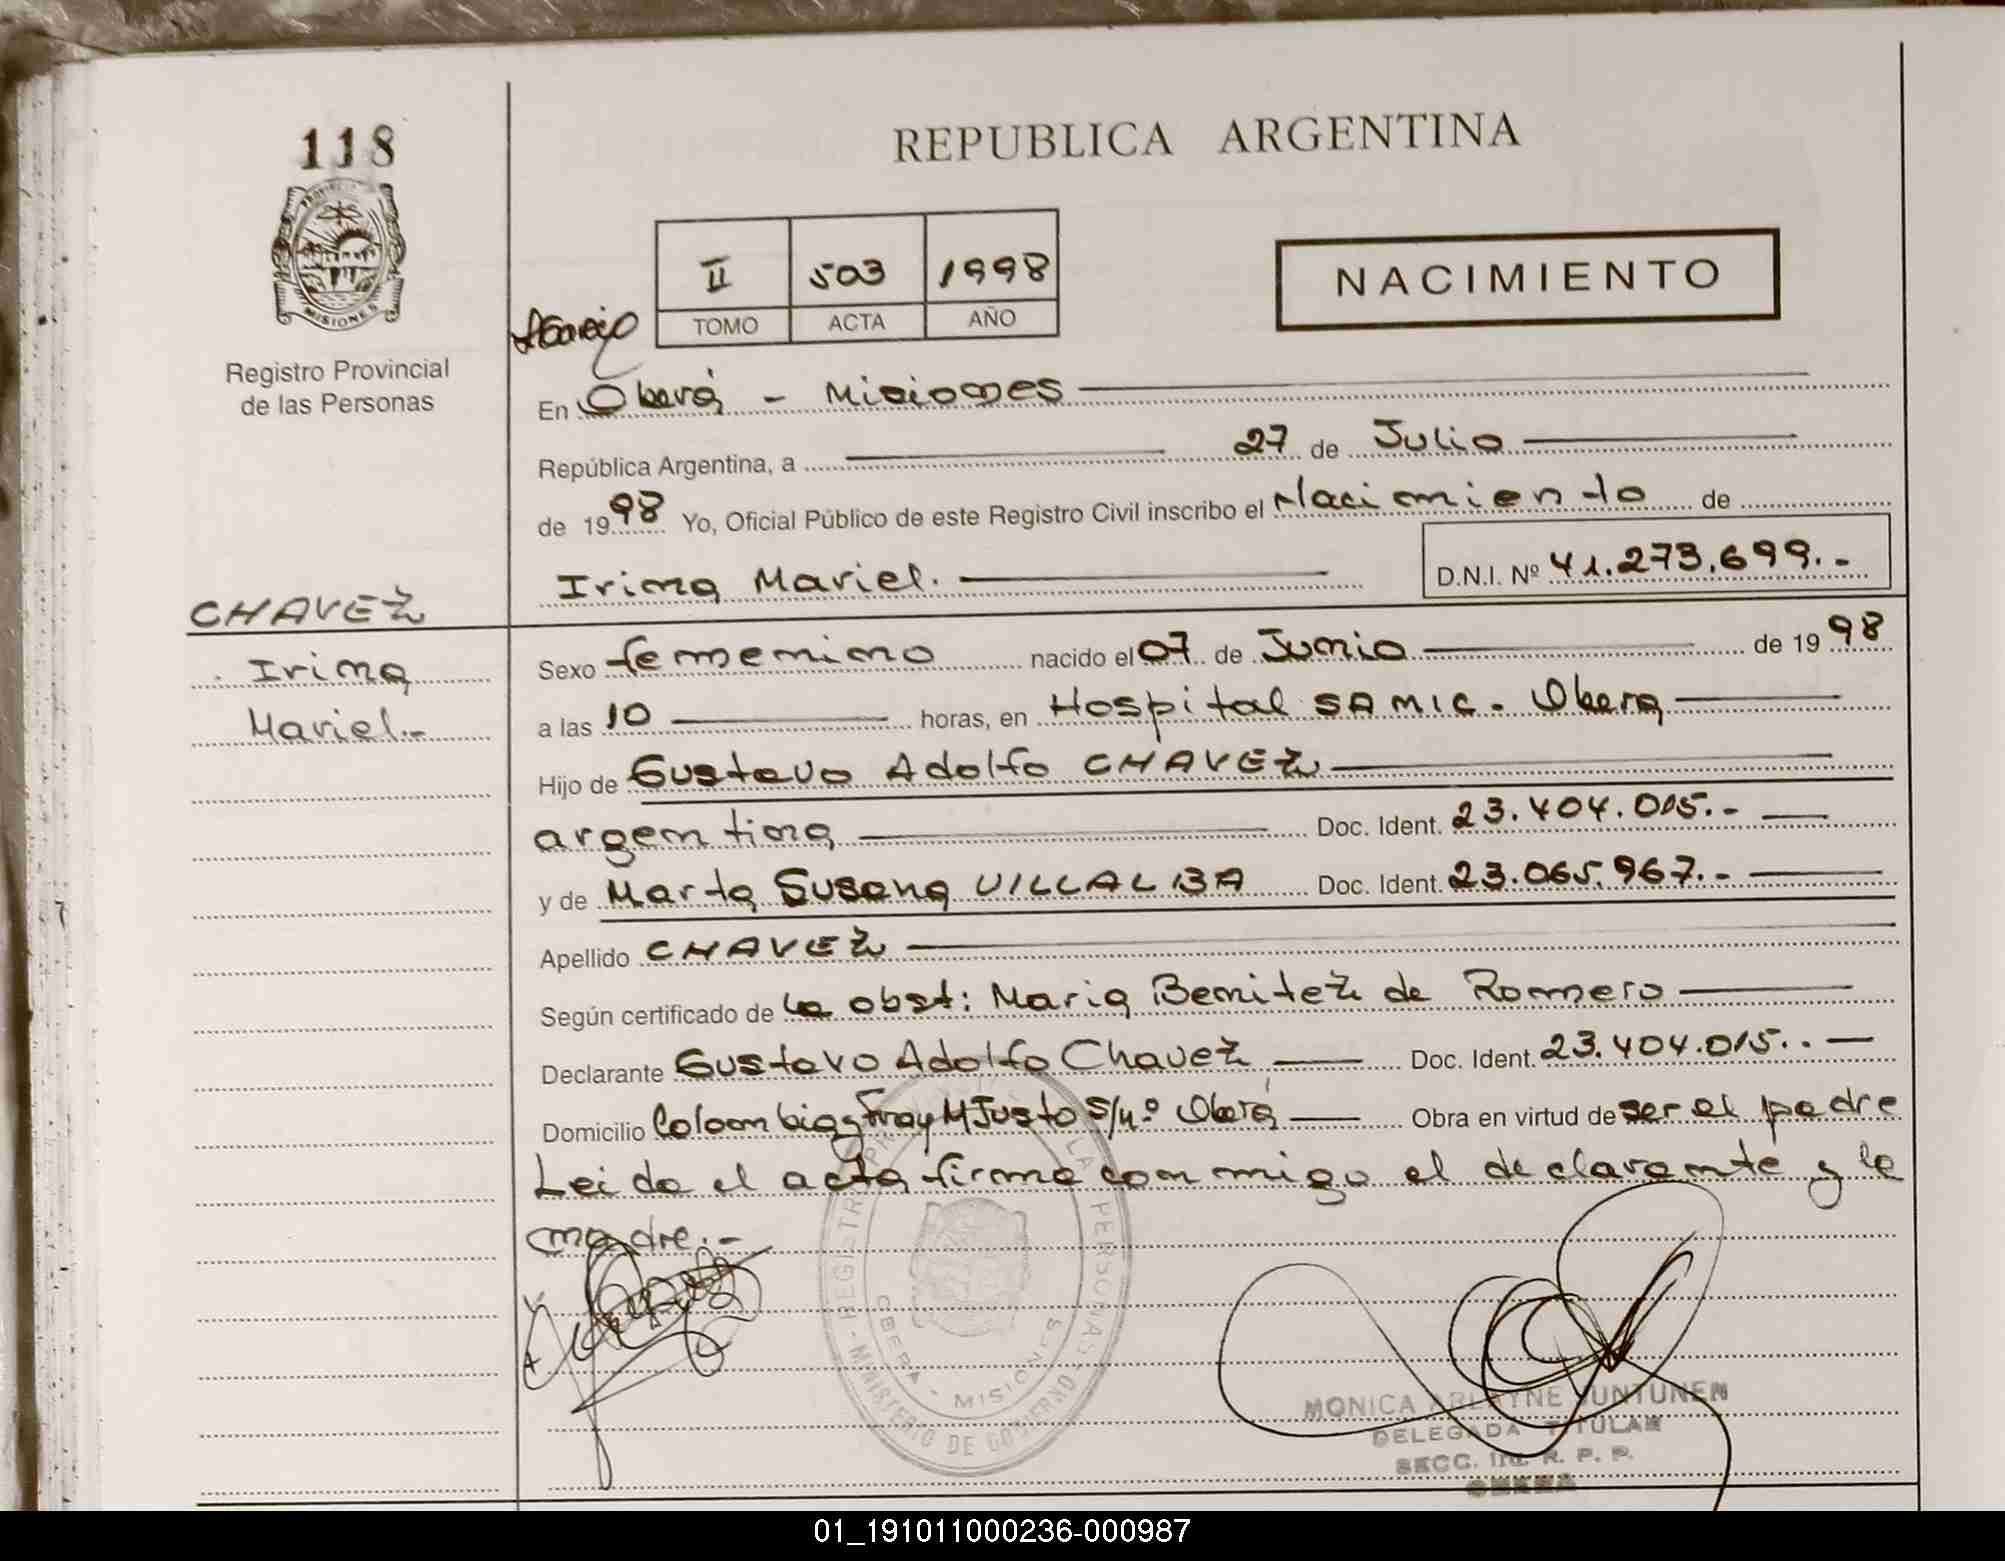 118
REPUBLICA ARGENTINA
PROVINCIA
MISIONES
Registro Provincial
de las Personas
II 503 1998
TOMO ACTA AÑO
NACIMIENTO
En Oberá - Misiones
República Argentina, a 27 de Julio
de 1998 Yo, Oficial Público de este Registro Civil inscribo el Nacimiento de
Irina Mariel. D.N.I. Nº 41.273.699.-
CHAVEZ
Irina
Mariel.-
Sexo femenino nacido el 07 de Junio de 1998
a las 10 horas, en Hospital SAMIC. Obera
Hijo de Gustavo Adolfo CHAVEZ
argentina Doc. Ident. 23.404.015.-
y de Marta Susana VILLALBA Doc. Ident. 23.065.967.-
Apellido CHAVEZ
Según certificado de la obst: Maria Benitez de Romero
Declarante Gustavo Adolfo Chavez Doc. Ident. 23.404.015..-
Domicilio Colombia y Fray M Justo S/nº Oberá Obra en virtud de ser el padre
Leida el acta firma conmigo el declarante y la
madre.-
REGISTRO LAS PERSONAS
MINISTERIO DE GOBIERNO
OBERA - MISIONES
MONICA ARLAYNE JUNTUNEN
DELEGADA TITULAR
SECC. R. P. P.
OBERA
01_191011000236-000987